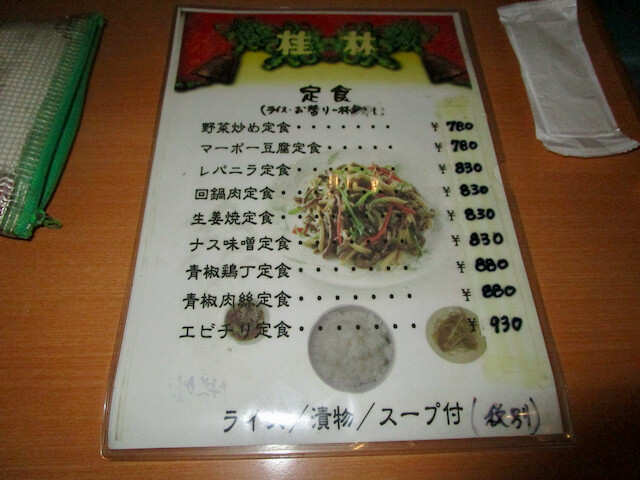 桂林
定食
(ライス・お替り一杯
野菜炒め定食・・・・・・・ ¥780
マーボー豆腐定食・・・・・・ ¥780
レバニラ定食・・・・・・・ ¥830
回鍋肉定食・・・・・・・ ¥830
生姜焼定食・・・・・・・ ¥830
ナス味噌定食・・・・・・・ ¥830
青椒鶏丁定食・・・・・・・ ¥880
青椒肉絲定食・・・・・・・ ¥880
エビチリ定食・・・・・・・ ¥930
ライス/漬物/スープ付(税別)